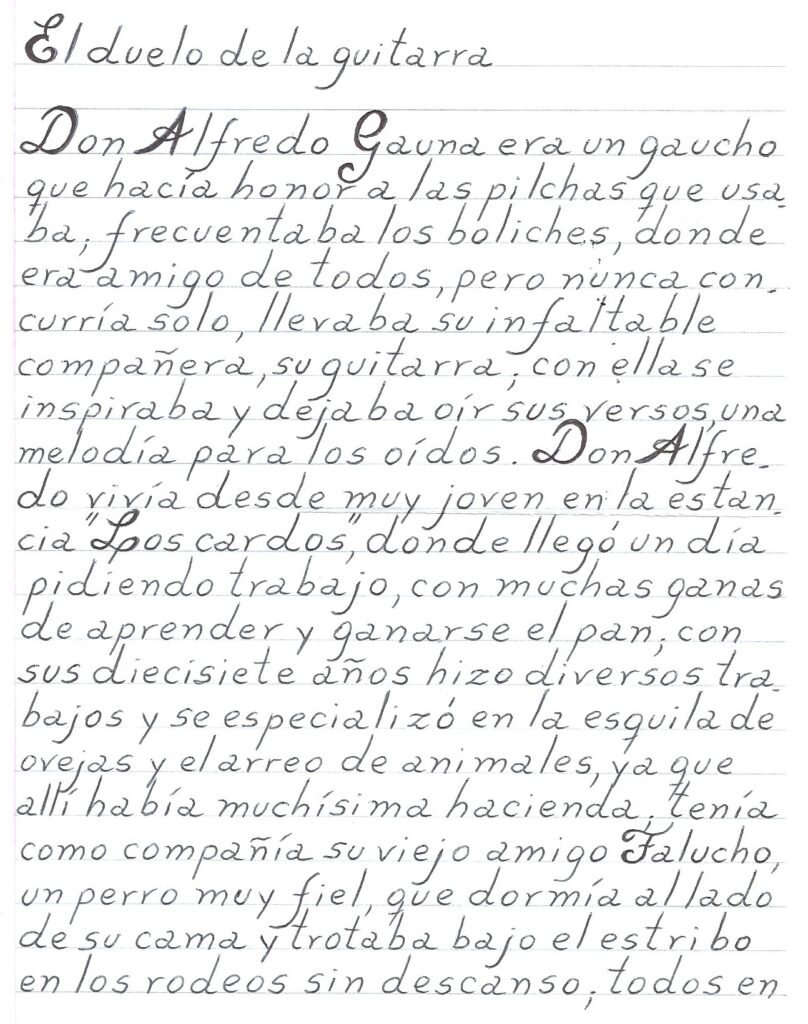 El duelo de la guitarra
Don Alfredo Gauna era un gaucho
que hacía honor a las pilchas que usa-
ba; frecuentaba los boliches, donde
era amigo de todos, pero nunca con-
curría solo, llevaba su infaltable
compañera, su guitarra; con ella se
inspiraba y dejaba oír sus versos, una
melodía para los oídos. Don Alfre-
do vivía desde muy joven en la estan-
cia "Los cardos", donde llegó un día
pidiendo trabajo, con muchas ganas
de aprender y ganarse el pan; con
sus diecisiete años hizo diversos tra-
bajos y se especializó en la esquila de
ovejas y el arreo de animales, ya que
allí había muchísima hacienda; tenía
como compañía su viejo amigo Falucho,
un perro muy fiel, que dormía al lado
de su cama y trotaba bajo el estribo
en los rodeos sin descanso; todos en